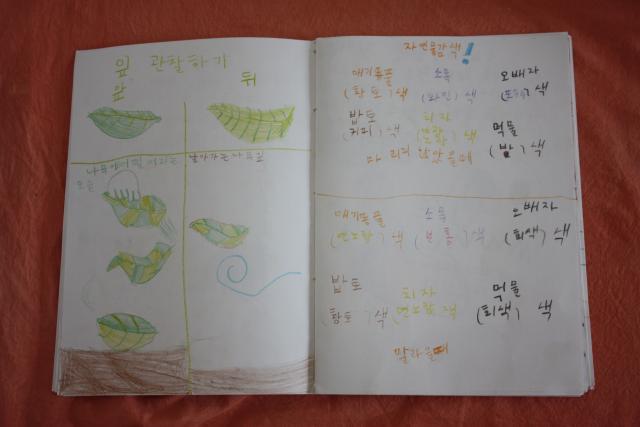 잎 관찰하기
앞
뒤
나무에서 떨어지는
모습
날아가는 나뭇잎
자연물감색!
애기똥풀 소목 오배자
(황토)색 (와인)색 색
밤토 치자 먹물
(커피)색 색 (밤)색
마르지 않았을때
애기똥풀 소목 오배자
(연노랑)색 (분홍)색 (회색)색
밤토 치자 먹물
(황토)색 연노랑 색 (회색) 색
말라을때